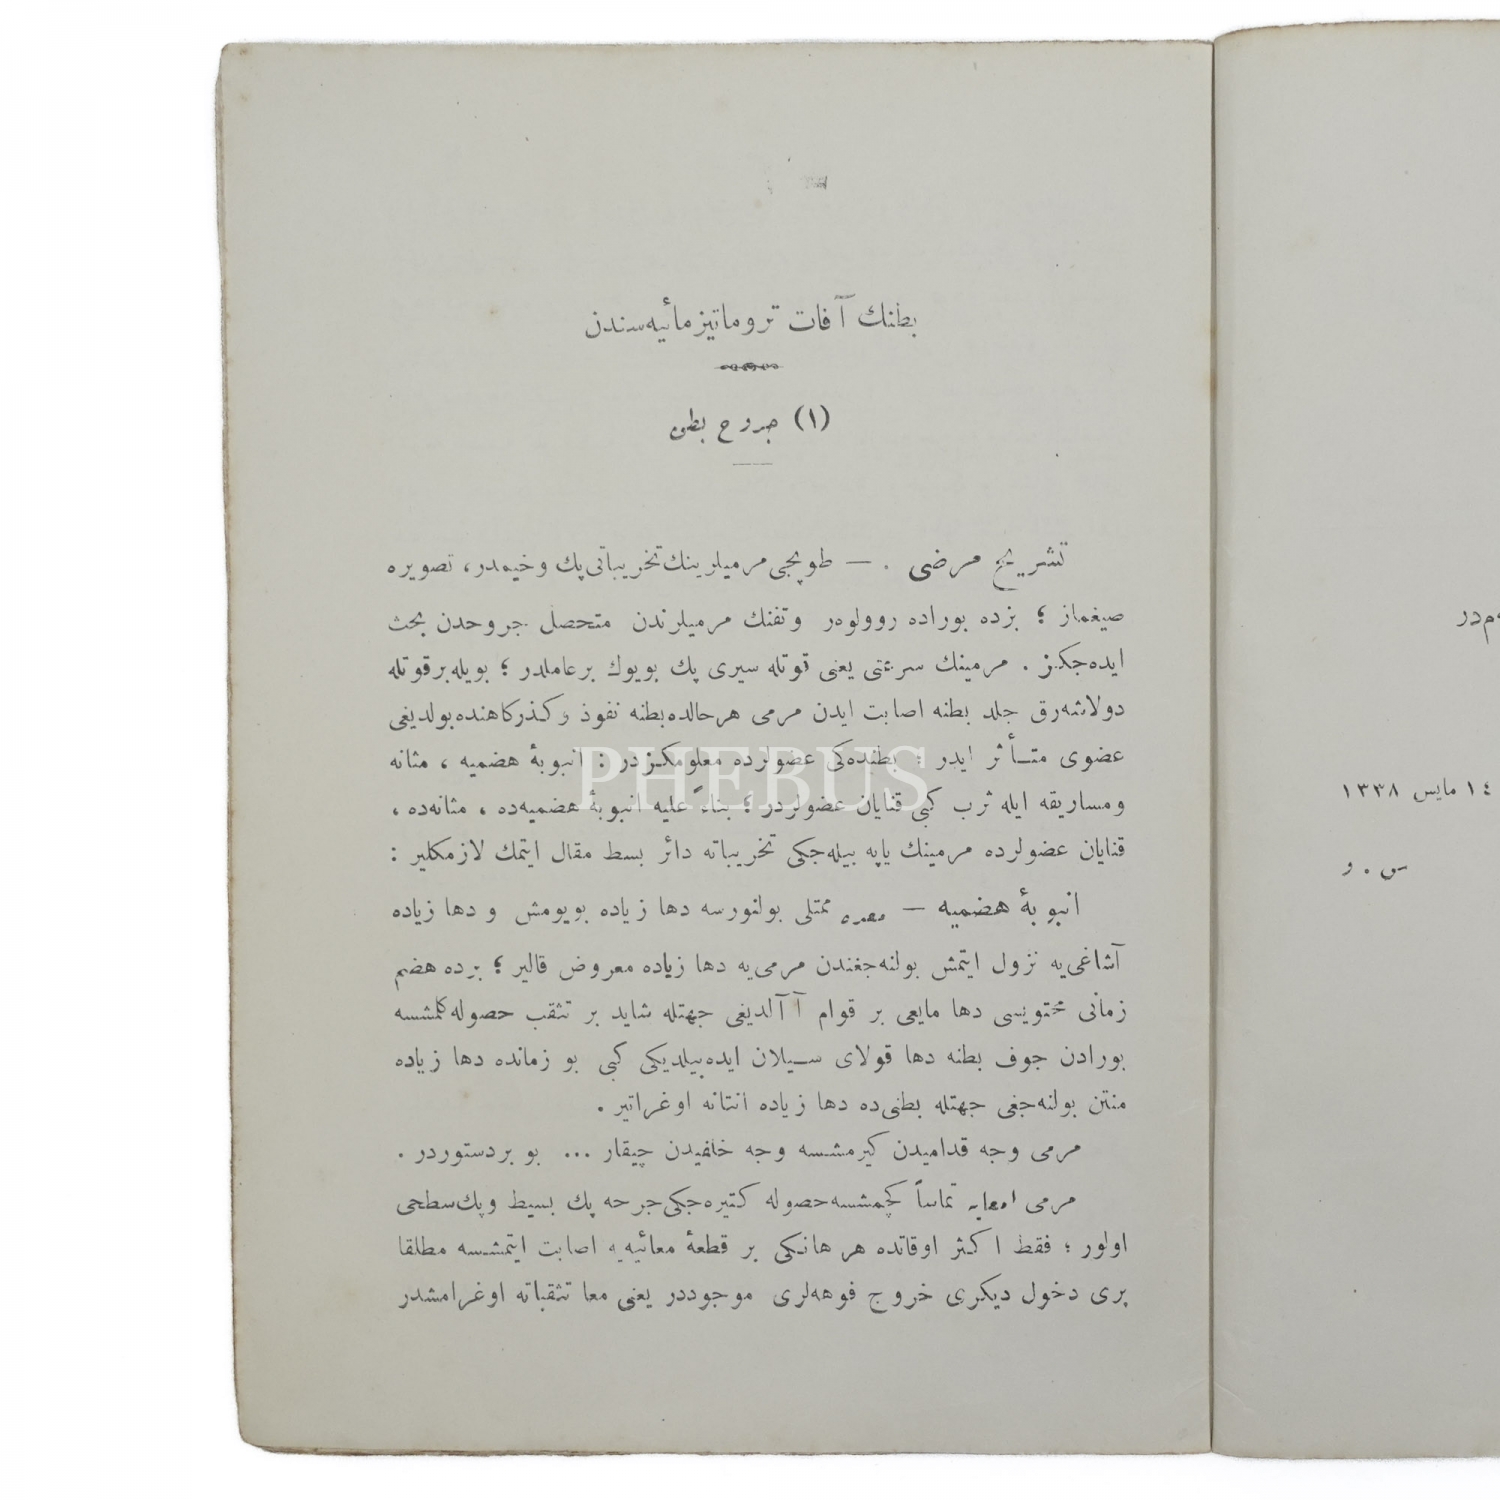 بطنك آفات تروماتيزمائيه‌سندن
(١) جروح بطن
تشريح مرضى . — طوپجى مرميلرينك تخريباتى پك وخيمدر، تصويره
صيغماز ؛ بزده بوراده روولوەر وتفنك مرميلرندن متحصل جروحدن بحث
ايده‌جكز . مرمينك سرعتى يعنى قوتله سيرى پك بويوك برعاملدر ؛ بويله برقوتله
دولاشه‌رق جلد بطنه اصابت ايدن مرمى هرحالده بطنه نفوذ و كذركاهنده بولديغى
عضوى متأثر ايدر : بطنده‌كى عضولرده معلومكزدر : انبوبۀ هضميه ، مثانه
ومساريقه ايله ثرب كبى قنايان عضولردر ؛ بناءً عليه انبوبۀ هضميه‌ده ، مثانه‌ده ،
قنايان عضولرده مرمينك ياپه بيله‌جكى تخريباته دائر بسط مقال ايتمك لازمكلير :
انبوبۀ هضميه — معده ممتلى بولنورسه دها زياده بويومش و دها زياده
آشاغى‌يه نزول ايتمش بولنه‌جغندن مرمى‌يه دها زياده معروض قالير ؛ برده هضم
زمانى محتويسى دها مايعى بر قوام آ آلديغى جهتله شايد بر تثقب حصوله كلمشسه
بورادن جوف بطنه دها قولاى سيلان ايده‌بيلديكى كبى بو زمانده دها زياده
منتن بولنه‌جغى جهتله بطنى‌ده دها زياده انتانه اوغراتير .
مرمى وجه قداميدن كيرمشسه وجه خلفيدن چيقار ... بو بردستوردر .
مرمى امعايه تماساً كچمشسه حصوله كتيره‌جكى جرحه پك بسيط وپك سطحى
اولور ؛ فقط اكثر اوقاتده هر هانكى بر قطعۀ معائيه‌يه اصابت ايتمشسه مطلقا
برى دخول ديكرى خروج فوهه‌لرى موجوددر يعنى معا تثقباته اوغرامشدر
م‌در
١٤ مايس ١٣٣٨
س . و
PHEBUS